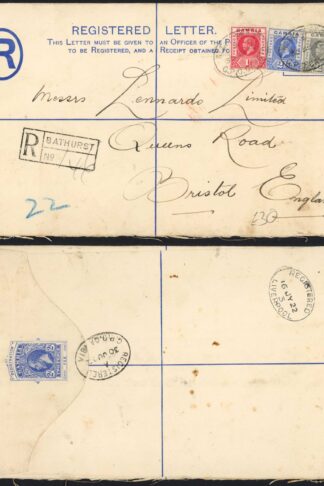 REGISTERED LETTER.
THIS LETTER MUST BE GIVEN TO AN OFFICER OF THE P
TO BE REGISTERED, AND A RECEIPT OBTAINED FO
R
GAMBIA
GAMBIA
Messrs Lennards Limited
R BATHURST
No
Queens Road
Bristol
Engla
22
£30
REGISTERED
16 JY 22
LIVERPOOL
REGISTERED
30 JU
GAMBIA